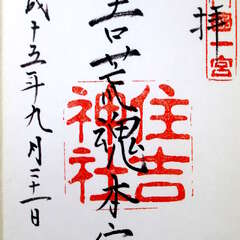 一宮
拝
吉荒魂本
住吉
神社
成十五年九月二十一日